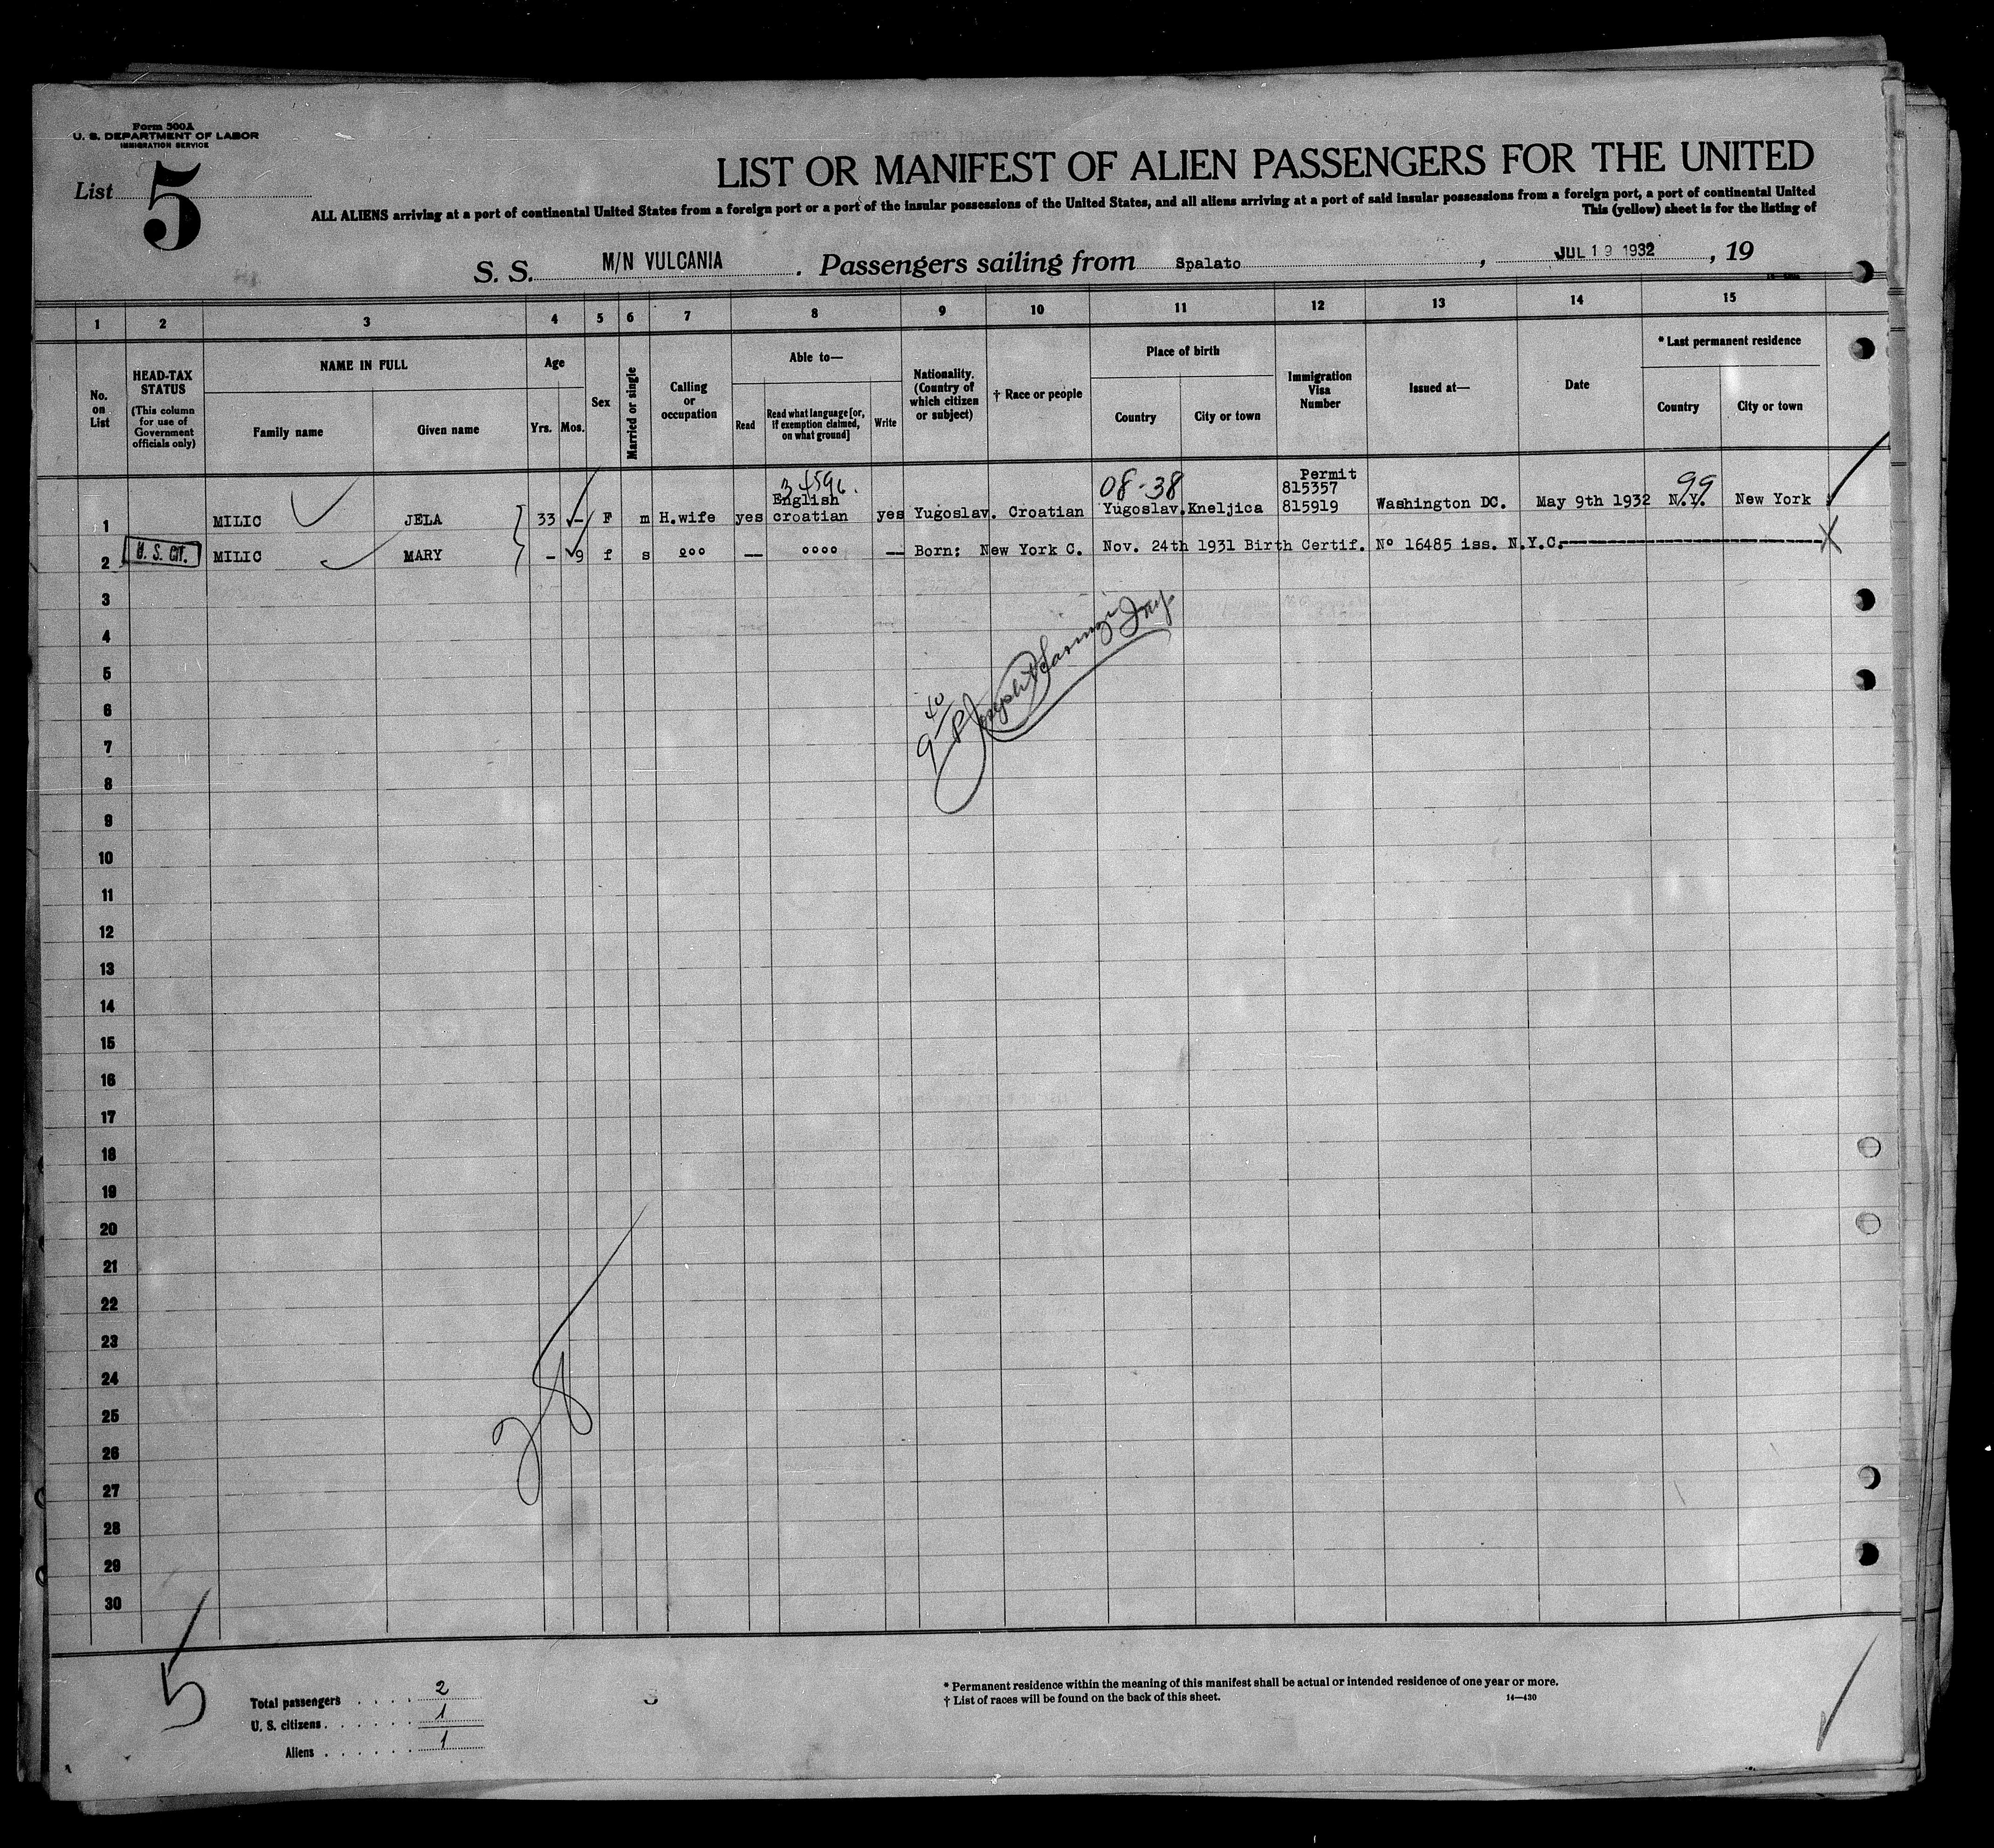 Form 500A
U. S. DEPARTMENT OF LABOR
IMMIGRATION SERVICE
List 5
LIST OR MANIFEST OF ALIEN PASSENGERS FOR THE UNITED
ALL ALIENS arriving at a port of continental United States from a foreign port or a port of the insular possessions of the United States, and all aliens arriving at a port of said insular possessions from a foreign port, a port of continental United
This (yellow) sheet is for the listing of
S. S. M/N VULCANIA. Passengers sailing from Spalato, JUL 19 1932, 19
1 2 3 4 5 6 7 8 9 10 11 12 13 14 15
No. on List
HEAD-TAX STATUS
(This column for use of Government officials only)
NAME IN FULL
Family name Given name
Age
Yrs. Mos.
Sex
Married or single
Calling or occupation
Able to—
Read
Read what language [or, if exemption claimed, on what ground]
Write
Nationality. (Country of which citizen or subject)
† Race or people
Place of birth
Country City or town
Immigration Visa Number
Issued at—
Date
* Last permanent residence
Country City or town
34596. 08-38 Permit 99
English 815357
1 MILIC JELA 33 — F m H.wife yes croatian yes Yugoslav. Croatian Yugoslav. Kneljica 815919 Washington DC. May 9th 1932 N.Y. New York
2 U. S. CIT. MILIC MARY — 9 f s ººº — ºººº — Born; New York C. Nov. 24th 1931 Birth Certif. Nº 16485 iss. N.Y.C.
3
4
5
6
7
8
9
10
11
12
13
14
15
16
17
18
19
20
21
22
23
24
25
26
27
28
29
30
5
Total passengers . . . . 2
U. S. citizens . . . . . . 1
Aliens . . . . . . 1
* Permanent residence within the meaning of this manifest shall be actual or intended residence of one year or more.
† List of races will be found on the back of this sheet.
14—430